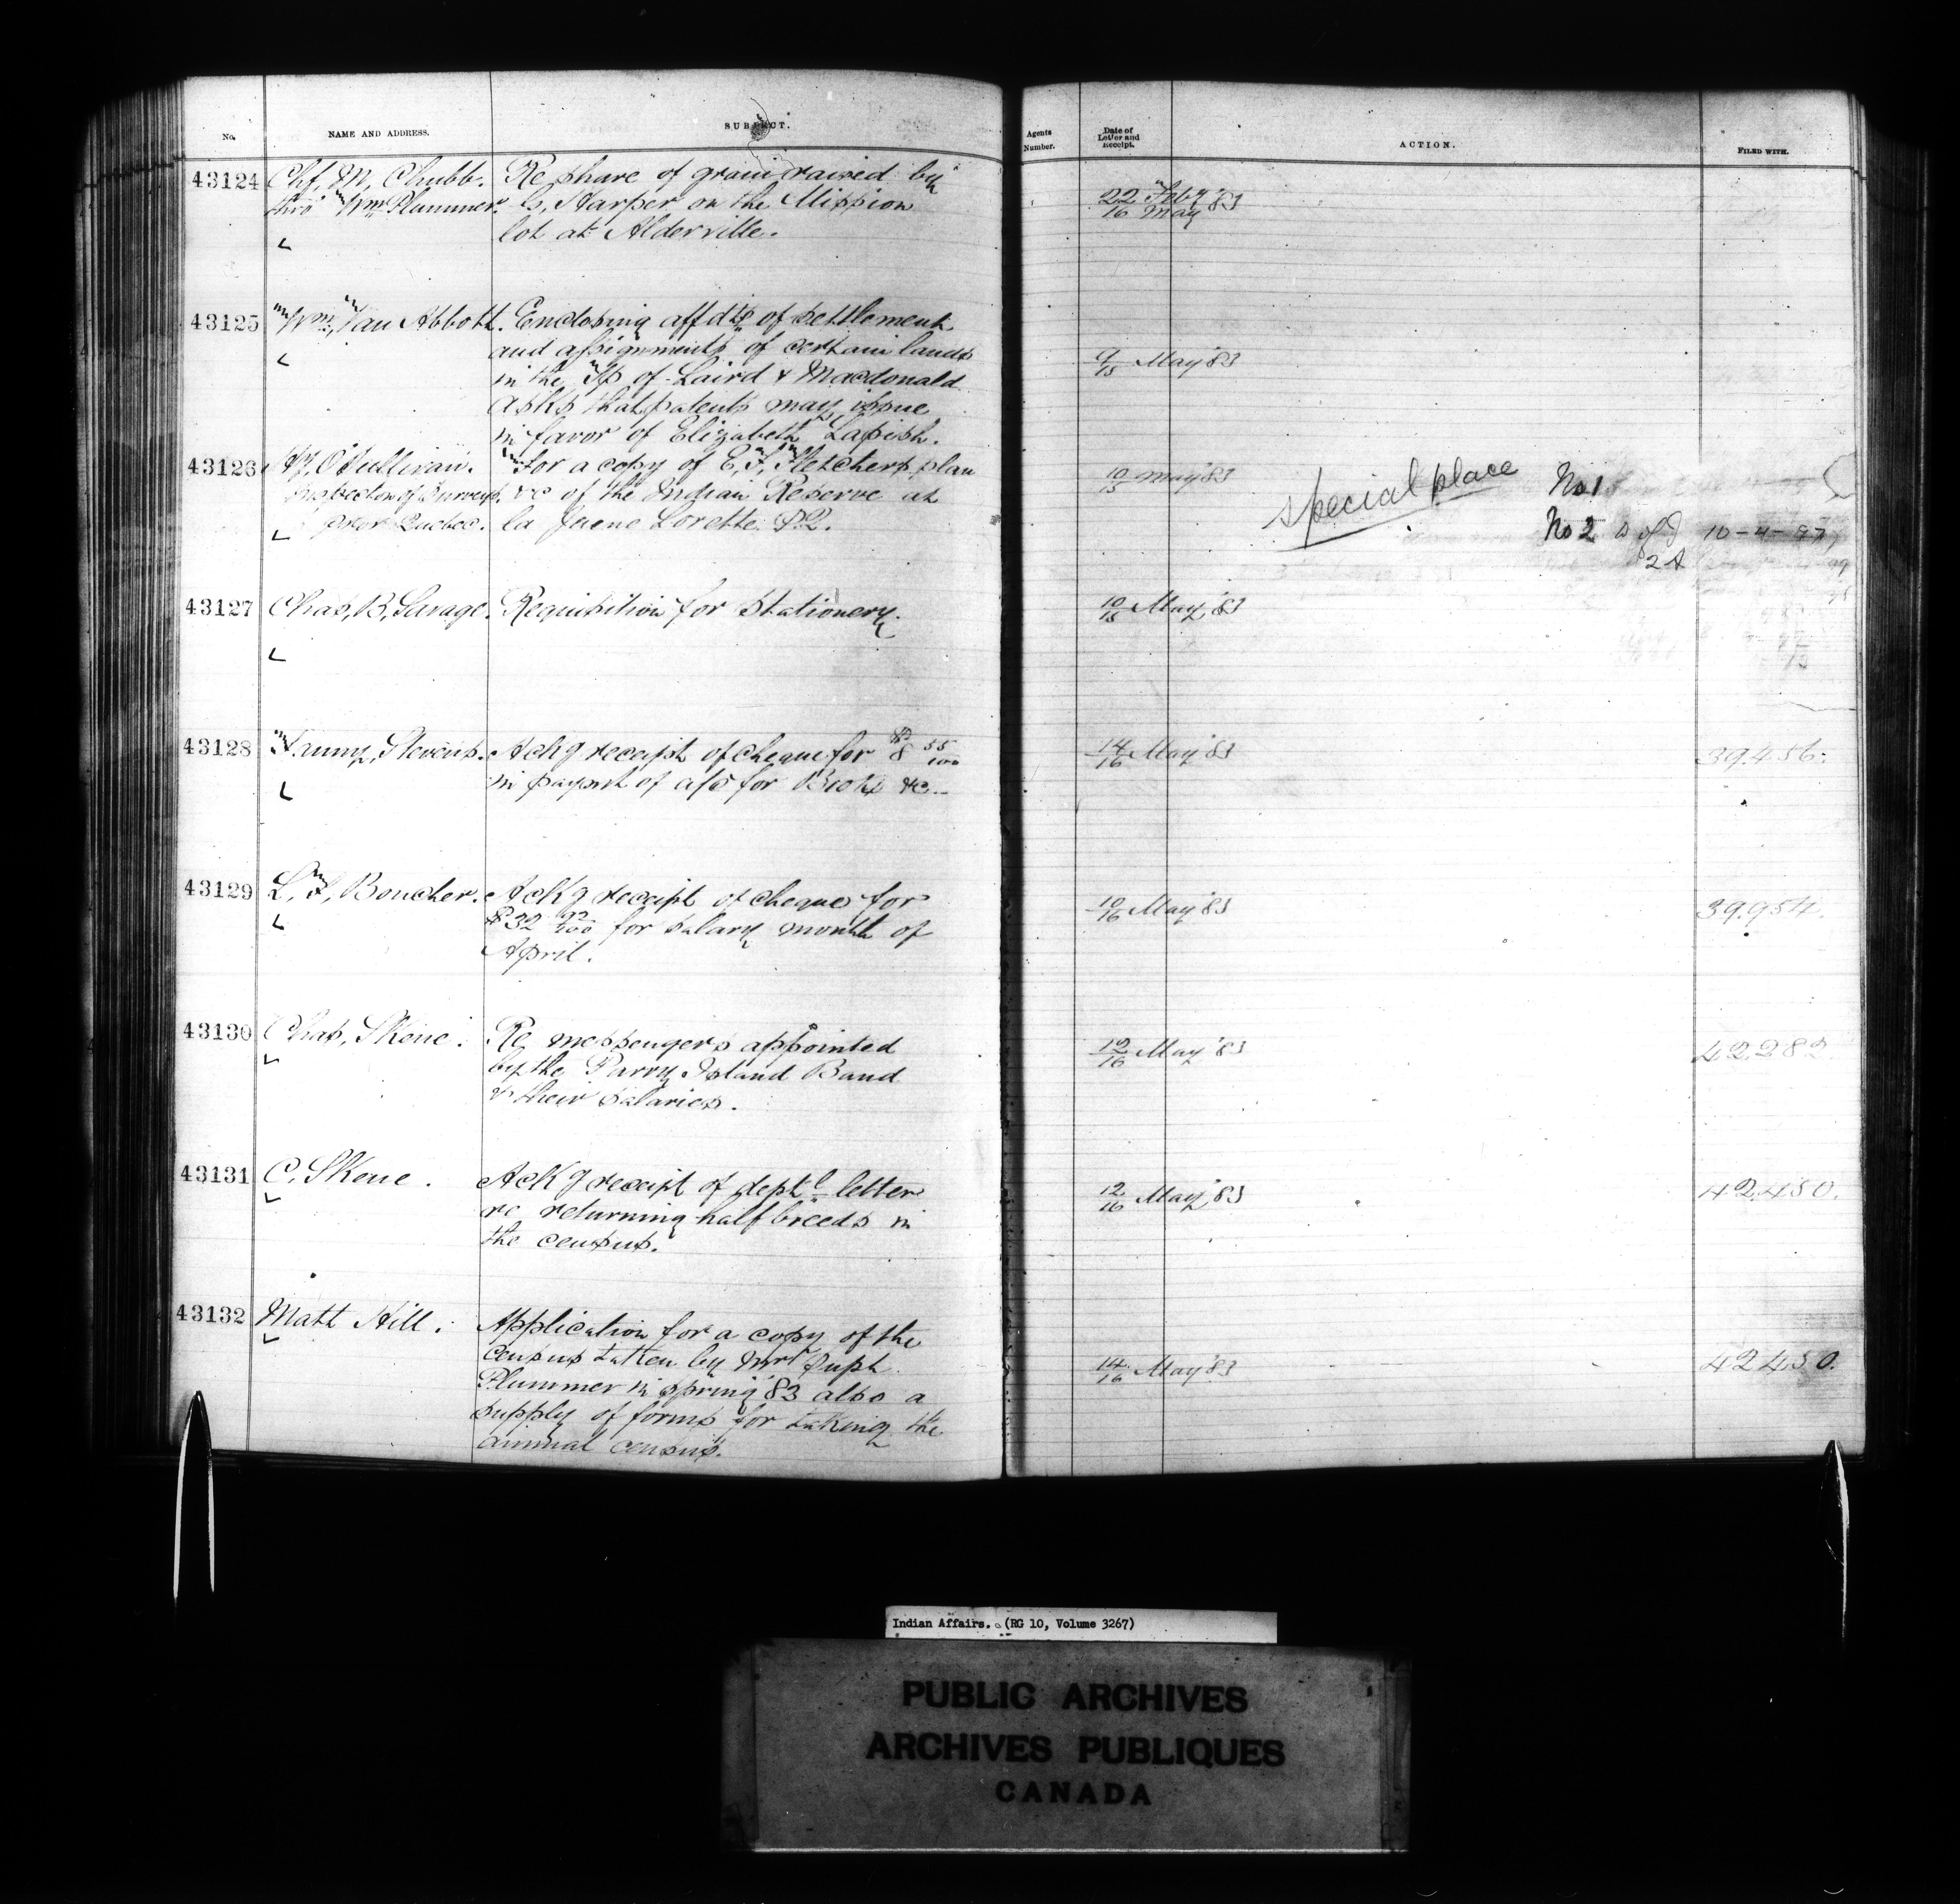 No. NAME AND ADDRESS. SUBJECT. Agents Number. Date of Letter and Receipt. ACTION. FILED WITH.
43124 Chf. M. Chubb. Re share of grain raised by
thro' Wm Plummer. G. Harper on the Mission 22 Feby '83
lot at Alderville. 16 May
43125 Wm. Van Abbott. Enclosing affdts of settlement
and assignments of certain lands 9/15 May '83
in the Tp of Laird & Macdonald
asks that patents may issue
in favor of Elizabeth Lapish.
43126 H. O'Sullivan. For a copy of E. T. Fletchers plan 10/15 May '83 special place No 1
Inspector of Surveys. &c of the Indian Reserve at
prov Quebec. la Jeune Lorette P.Q. No 2 10-4-97
2A
43127 Chas. B. Savage. Requisition for Stationery. 10/15 May '83
43128 Fanny Stevens. Ackg receipt of cheque for $8 55/100 14/16 May '83 39.456.
in paymt of a/c for Books &c
43129 L. F. Boucher. Ackg receipt of cheque for 10/16 May '83 39.954.
$32 92/100 for salary month of
April.
43130 Chas. Skene. Re messengers appointed 12/16 May '83 42282
by the Parry Island Band
& their salaries.
43131 C. Skene. Ackg receipt of deptl letter 12/16 May '83 42.450.
re returning half breeds in
the census.
43132 Matt Hill. Application for a copy of the
census taken by Supt 14/16 May '83 42450.
Plummer in spring '83 also a
supply of forms for taking the
annual census.
Indian Affairs. (RG 10, Volume 3267)
PUBLIC ARCHIVES
ARCHIVES PUBLIQUES
CANADA